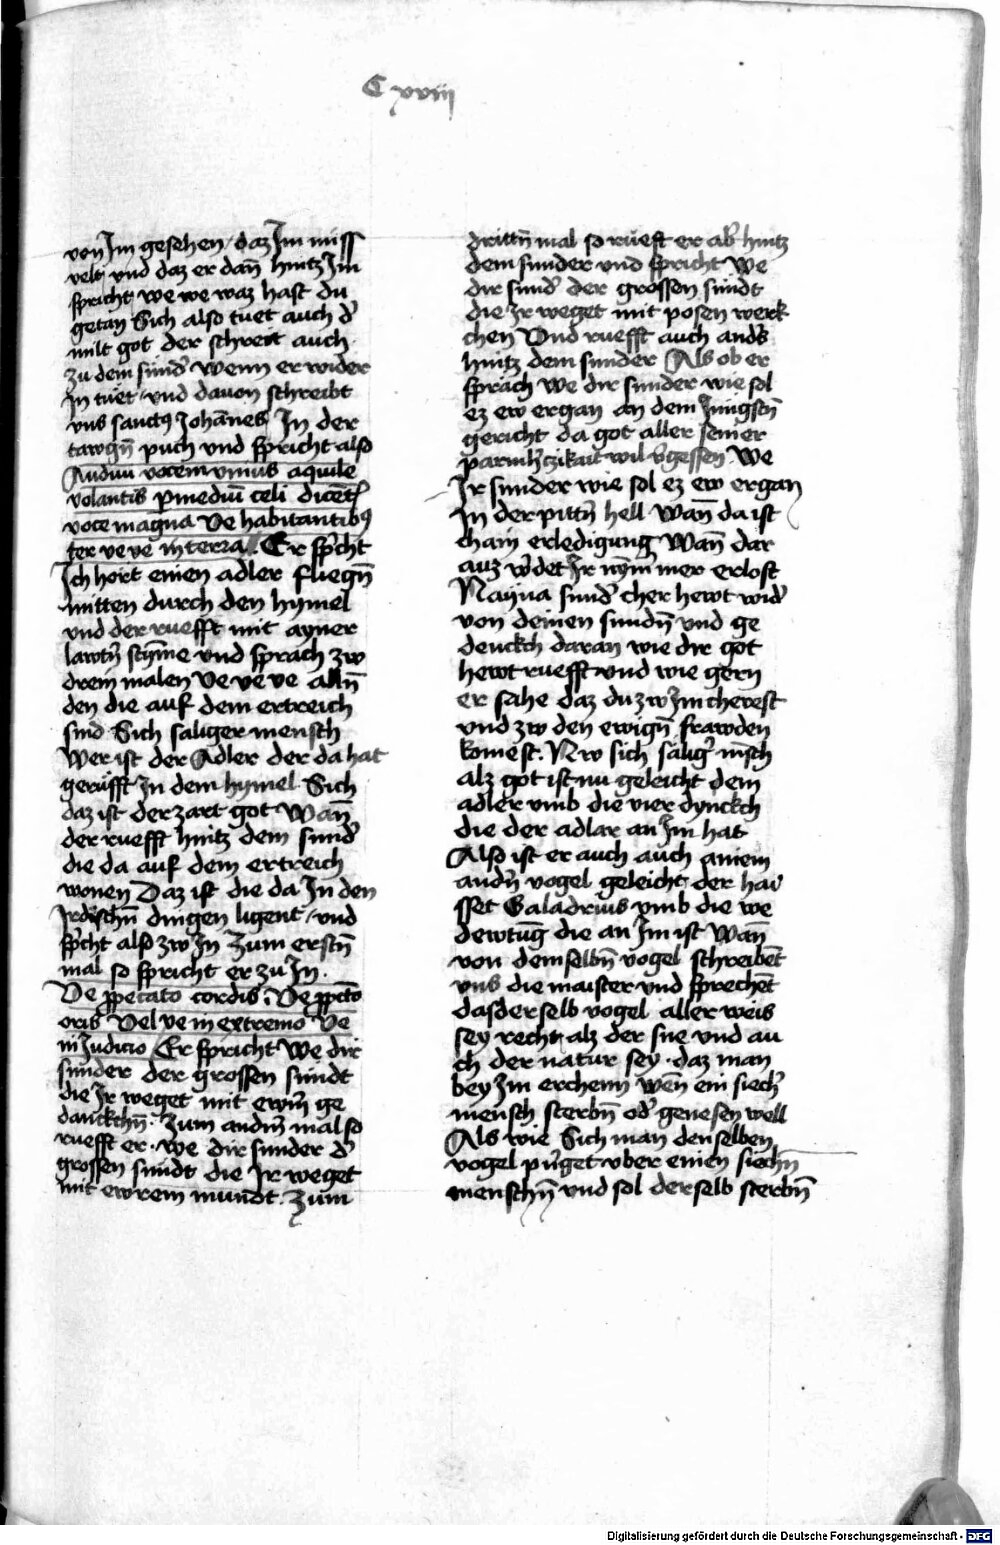 C xviij
von Im gesehen / daz Im miss
velt vnd daz er dan̄ hintz Im
spricht we we waz hast du
getan Sich also tuet auch d'
milt got der schreit auch
zu dem sund' wenn er wider
In tuet vnd davon schreibt
vns sanctꝰ Johān̄es In der
tawgn̄ puch vnd spricht also
Audiui vocem vnius aquile
volantis p mediū celi dicēt
voce magna Ve habitantibꝰ
ter ve ve in terra Er sp'cht
Ich hort einen adler fliegn̄
mitten durch den hymel
vnd der ruefft mit ayner
lawtn̄ stym̄e vnd sprach zw
drein malen Ve ve ve alln̄
den die auf dem ertreich
sind Sich saliger mensch
Wer ist der Adler der da hat
gerufft In dem hymel Sich
daz ist der zart got Wan̄
der ruefft hintz dem sund'
die da auf dem ertreich
wonen Daz ist die da In den
Irdischn̄ dingen ligent / vnd
sp'cht also zw In Zum erstn̄
mal so spricht er zu In .
Ve p peccato cordis : Ve p pctō
oris Vel ve in extremo Ve
in Judicio Er spricht We dir
sunder der grossen sundt
die Ir weget mit ewrn̄ ge
danckchn̄ . Zum andn̄ mal so
ruefft er . we dir sunder d'
grossen sundt die Ir weget
mit ewrem mundt . Zum
drittn̄ mal so rueft er ab' hintz
dem sunder vnd spricht We
dir sund' der grossen sundt
die Ir weget mit posen werk
chen Vnd ruefft auch ands
hintz dem sunder Als ob er
sprach we dir sunder wie sol
ez ew ergan an dem Jungstn̄
gericht da got aller seiner
parmh'czikait wil v'gessen We
Ir sunder wie sol ez ew ergan
In der pittn̄ hell Wan̄ da ist
chain erledigung Wan̄ dar
auz w'det Ir nym̄ mer erlost
Nayna sund' cher hewt wid'
von deinen sundn̄ vnd ge
denckch daran wie dir got
hewt ruefft vnd wie gern
er sahe daz du zw Im cherest
vnd zw den ewign̄ frawden
komest . Nw sich salig' m̄sch
alz got ist nu geleicht dem
adler vmb die vier dynckch
die der adlar an Im hat
Also ist er auch auch ainem
andn̄ vogel geleicht der hai
sset Galadrius vmb die we
dewtūg die an Im ist Wan̄
von dem selbn̄ vogel schreibēt
vns die maister vnd sprechēt
das der selb vogel aller weis
sey recht alz der sne vnd au
ch der natur sey . daz man
bey Im erchenn̄ wēn ein siech'
mensch sterbn̄ od' genesen well
Als wie Sich man den selben
vogel p'nget vber einen siechn̄
menschn̄ vnd sol der selb sterbn̄
Digitalisierung gefördert durch die Deutsche Forschungsgemeinschaft - DFG